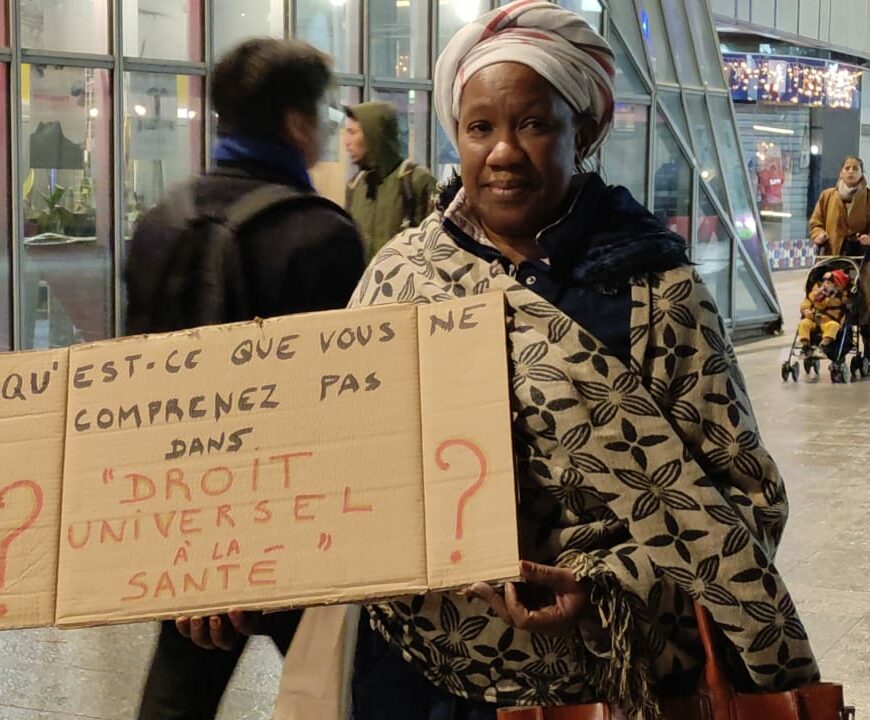 QU'EST-CE QUE VOUS NE
COMPRENEZ PAS
DANS
"DROIT
UNIVERSEL
À LA
SANTÉ"
? ?